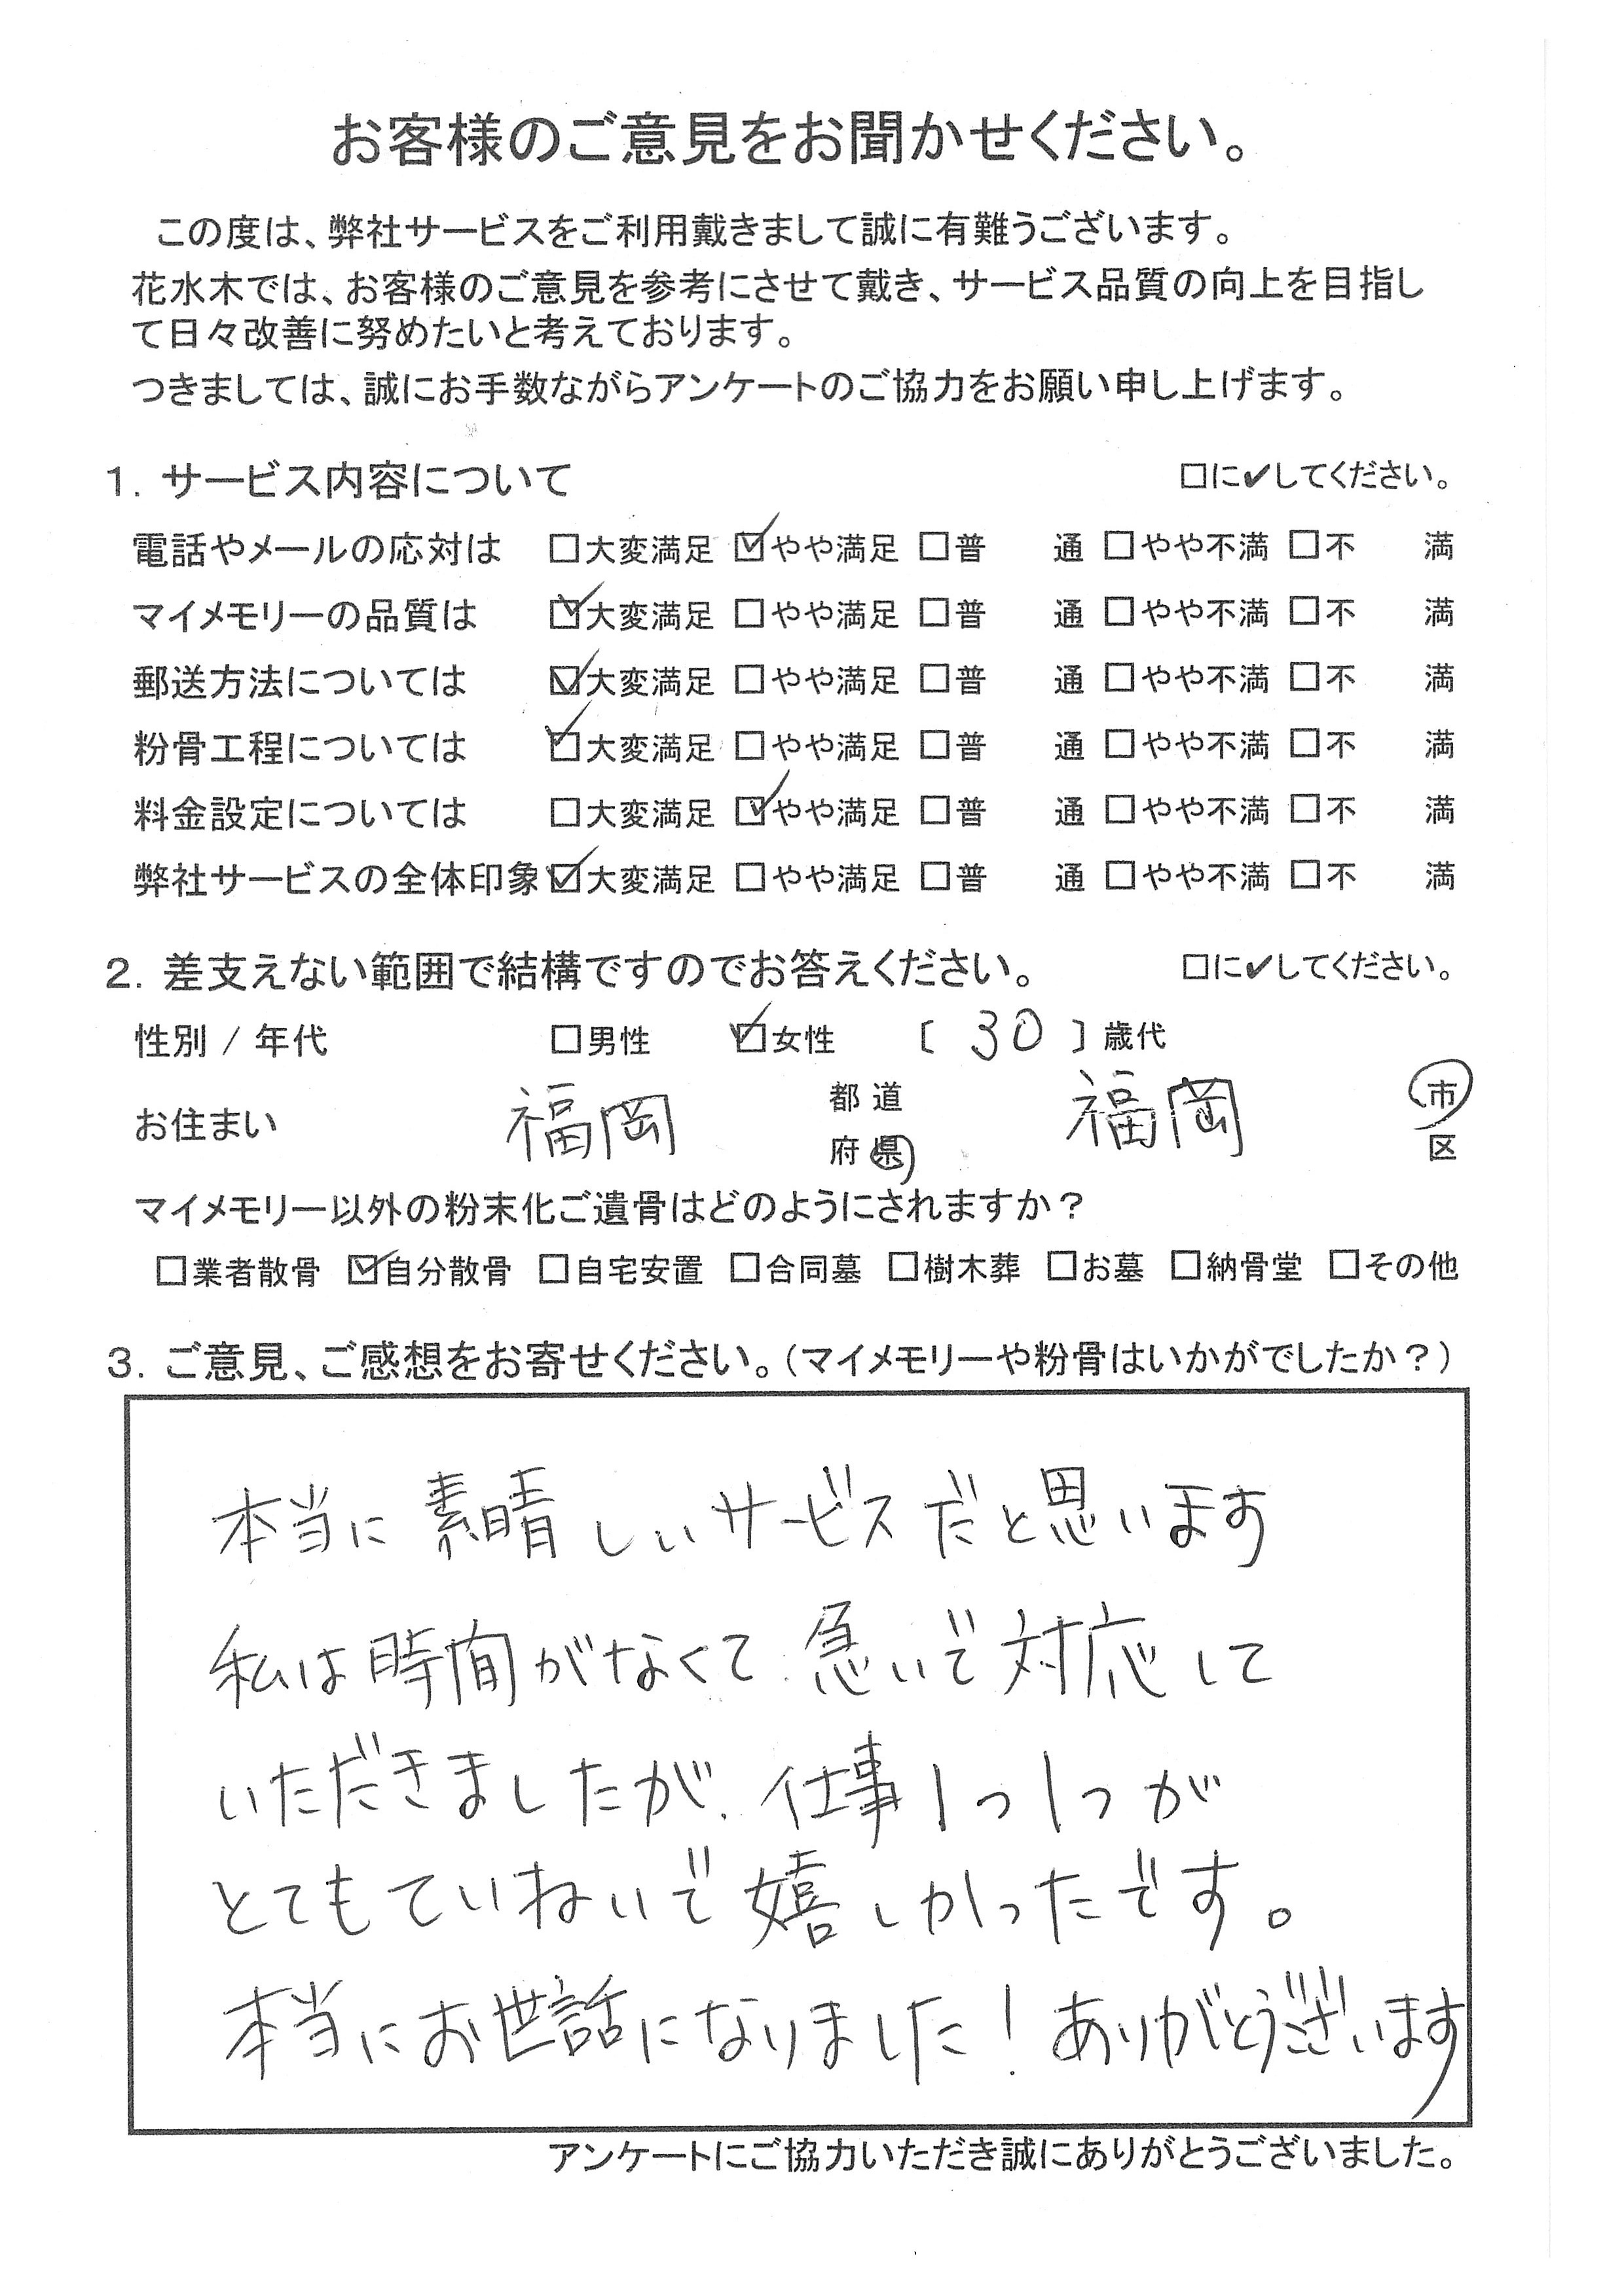 お客様のご意見をお聞かせください。
この度は、弊社サービスをご利用戴きまして誠に有難うございます。
花水木では、お客様のご意見を参考にさせて戴き、サービス品質の向上を目指し
て日々改善に努めたいと考えております。
つきましては、誠にお手数ながらアンケートのご協力をお願い申し上げます。
1. サービス内容について □に✔してください。
電話やメールの応対は □大変満足 ☑やや満足 □普 通 □やや不満 □不 満
マイメモリーの品質は ☑大変満足 □やや満足 □普 通 □やや不満 □不 満
郵送方法については ☑大変満足 □やや満足 □普 通 □やや不満 □不 満
粉骨工程については ☑大変満足 □やや満足 □普 通 □やや不満 □不 満
料金設定については □大変満足 ☑やや満足 □普 通 □やや不満 □不 満
弊社サービスの全体印象 ☑大変満足 □やや満足 □普 通 □やや不満 □不 満
2. 差支えない範囲で結構ですのでお答えください。 □に✔してください。
性別 / 年代 □男性 ☑女性 〔 30 〕歳代
お住まい 福岡 都道府県 福岡 市区
マイメモリー以外の粉末化ご遺骨はどのようにされますか？
□業者散骨 ☑自分散骨 □自宅安置 □合同墓 □樹木葬 □お墓 □納骨堂 □その他
3. ご意見、ご感想をお寄せください。（マイメモリーや粉骨はいかがでしたか？）
本当に素晴しいサービスだと思います
私は時間がなくて急いで対応して
いただきましたが、仕事1つ1つが
とてもていねいで嬉しかったです。
本当にお世話になりました！ありがとうございます
アンケートにご協力いただき誠にありがとうございました。